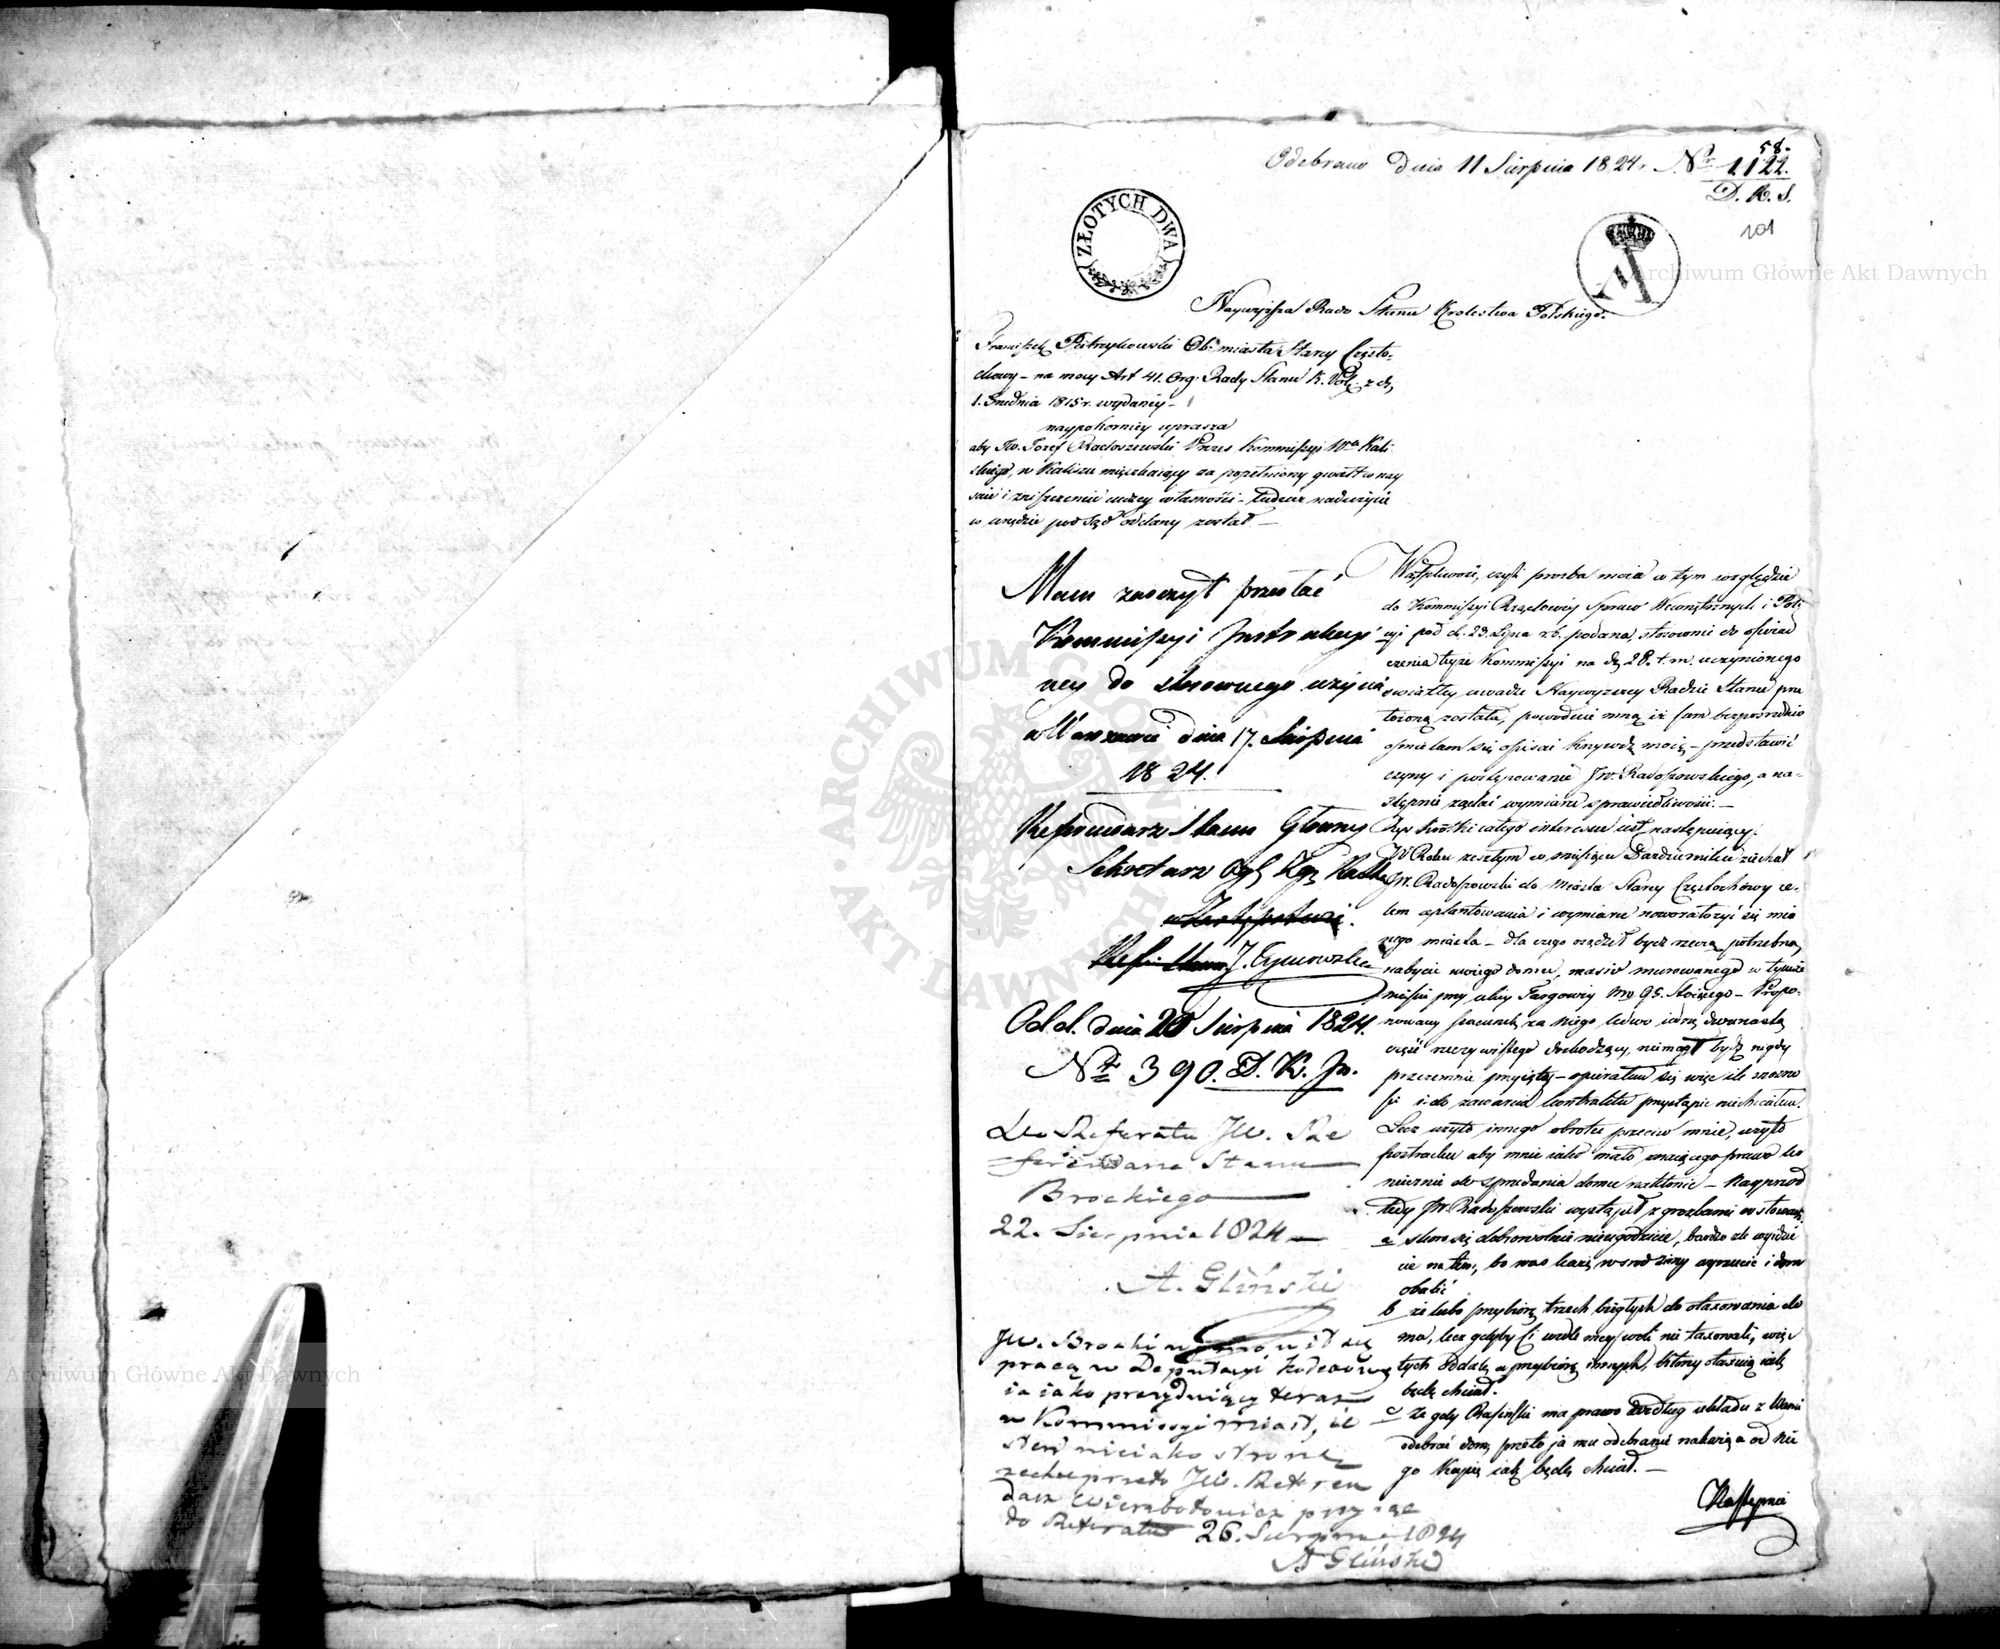 58.
Odebrano Dnia 11 Sierpnia 1824. Nr 1122.
D. K. J.
101
ZŁOTYCH DWA
Naywyższa Rado Stanu Krolestwa Polskiego.
Franciszek Pietrzykowski Ob. miasta Starey Często-
chowy – na mocy Art 41. Org. Rady Stanu K. Pol. z d.
1. Grudnia 1815 r. wydaney –
naypokorniey uprasza
aby Jw. Jozef Radoszewski Prezes Kommissyi Wwa Kali
skiego, w Kaliszu mieszkaiący za popełniony gwałt w nay
ściu i zniszczeniu cudzey własności – tudzież nadużycie
w urzędzie pod Sąd oddany został –
Mam zaszczyt przesłać
Kommissyi Instrukcyi
ney do stosownego użycia
w Warszawie dnia 17. Sierpnia
1824.
Referendarz Stanu Główny
Sekretarz
w Zastępstwie.
Ref. Stanu J. Tymowski
Odd. dnia 20 Sierpnia 1824.
Nr 390. D. K. In.
Do Referatu JW. Re
ferendarza Stanu
Brockiego
22. Sierpnia 1824 –
A. Gliński
JW. Brocki wymówił się
pracą w Deputacyi
ia iako prezyduiący teraz
w Kommissyi miast, iest
w niey iako stroną
zechce przeto JW. Referen
darz Wierzbołowicz przyiąć
do Referatu 26. Sierpnia 1824
A Gliński
Wątpliwość, czyli prozba moia w tym względzie
do Kommissyi Rządowey Spraw Wewnętrznych i Poli
cyi pod d. 23. Lipca r. b. podana, stosownie do oświad
czenia teyże Kommissyi na d. 28. t. m. uczynionego
światłey uwadze Naywyższey Radzie Stanu prze
łożoną została, powoduie mną iż sam bezpośrednio
ośmielam się opisać krzywdę moią – przedstawić
czyny i postępowanie JW. Radoszewskiego, a na-
stępnie żądać wymiaru sprawiedliwości. –
Rys krótki całego interessu iest następuiący.
W Roku zeszłym w miesiącu Pazdzierniku ziechał
JW. Radoszewski do Miasta Starey Częstochowy ce-
lem splantowania i wymiaru noworatozyć się mia
nego miasta – dla czego osądził bydź rzeczą potrzebną
nabycie moiego domu, masiw murowanego w tymże
mieście przy ulicy Targowey Nro 95. Stoiącego – Propo-
nowany szacunek za niego ledwo iedną dwunastą
część rzeczywistego dochodzący, niemógł bydź nigdy
przezemnie przyięty – opierałem się więc ile możno
ści i do zawarcia kontraktu przystąpić niechciałem.
Lecz użyto innego obrotu przeciw mnie, użyto
postrachu aby mnie iako mało znaiącego prawo ko
niecznie do sprzedania domu nakłonić – Nayprzod
tedy JW. Radoszewski wystąpił z grozbami w słowach.
a skoro się dobrowolnie nieugodzicie, bardzo źle wyidzie
cie na tem, bo was każę wśrod zimy wyrzucić i dom
obalić
b że lubo przybiorę trzech biegłych do otaxowania do
mu, lecz gdyby ci wedle mey woli nie taxowali, więc
tych oddalę a przybiorę innych, którzy otaxuią iak
będę chciał.
c Że gdy Rasiński ma prawo według układu z Wami
odebrać dom, przeto ja mu odebranie nakażę a od nie
go kupię iak będę chciał. –
Następnie
Archiwum Główne Akt Dawnych
Archiwum Główne Akt Dawnych
ARCHIWUM GŁÓWNE AKT DAWNYCH